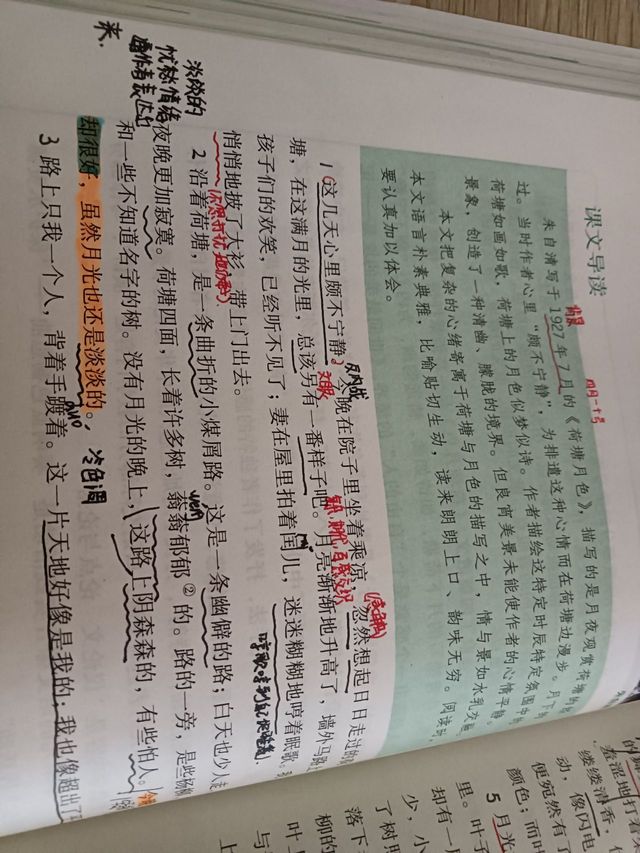 课文导读
背景
朱自清写于1927年7月的《荷塘月色》，描写的是月夜观赏荷塘的
过。当时作者心里“颇不宁静”，为排遣这种心情而在荷塘边漫步。月下
荷塘如画如歌，荷塘上的月色似梦似诗。作者描绘这特定时辰特定氛围中的
景象，创造了一种清幽、朦胧的境界。但良宵美景未能使作者的心情平静。
本文把复杂的心绪寄寓于荷塘与月色的描写之中，情与景如水乳交融
本文语言朴素典雅，比喻贴切生动，读来朗朗上口、韵味无穷。阅读
要认真加以体会。
1 这几天心里颇不宁静。今晚在院子里坐着乘凉，忽然想起日日走过的
文眼
塘，在这满月的光里，总该另有一番样子吧。月亮渐渐地升高了，墙外马路
孩子们的欢笑，已经听不见了；妻在屋里拍着闰儿，迷迷糊糊地哼着眠歌。
悄悄地披了大衫，带上门出去。
2 沿着荷塘，是一条曲折的小煤屑路。这是一条幽僻的路；白天也少人走
夜晚更加寂寞。荷塘四面，长着许多树，蓊蓊郁郁②的。路的一旁，是些杨柳
和一些不知道名字的树。没有月光的晚上，这路上阴森森的，有些怕人。
却很好，虽然月光也还是淡淡的。
冷色调
3 路上只我一个人，背着手踱着。这一片天地好像是我的；我也像超出了
淡淡的
忧愁情绪
来.
缕缕清香，
动，像闪电
便宛然有了
颜色；而叶
5 月光
里。叶子
却有一
少，小
了树照
落下
柳的
叶上
与